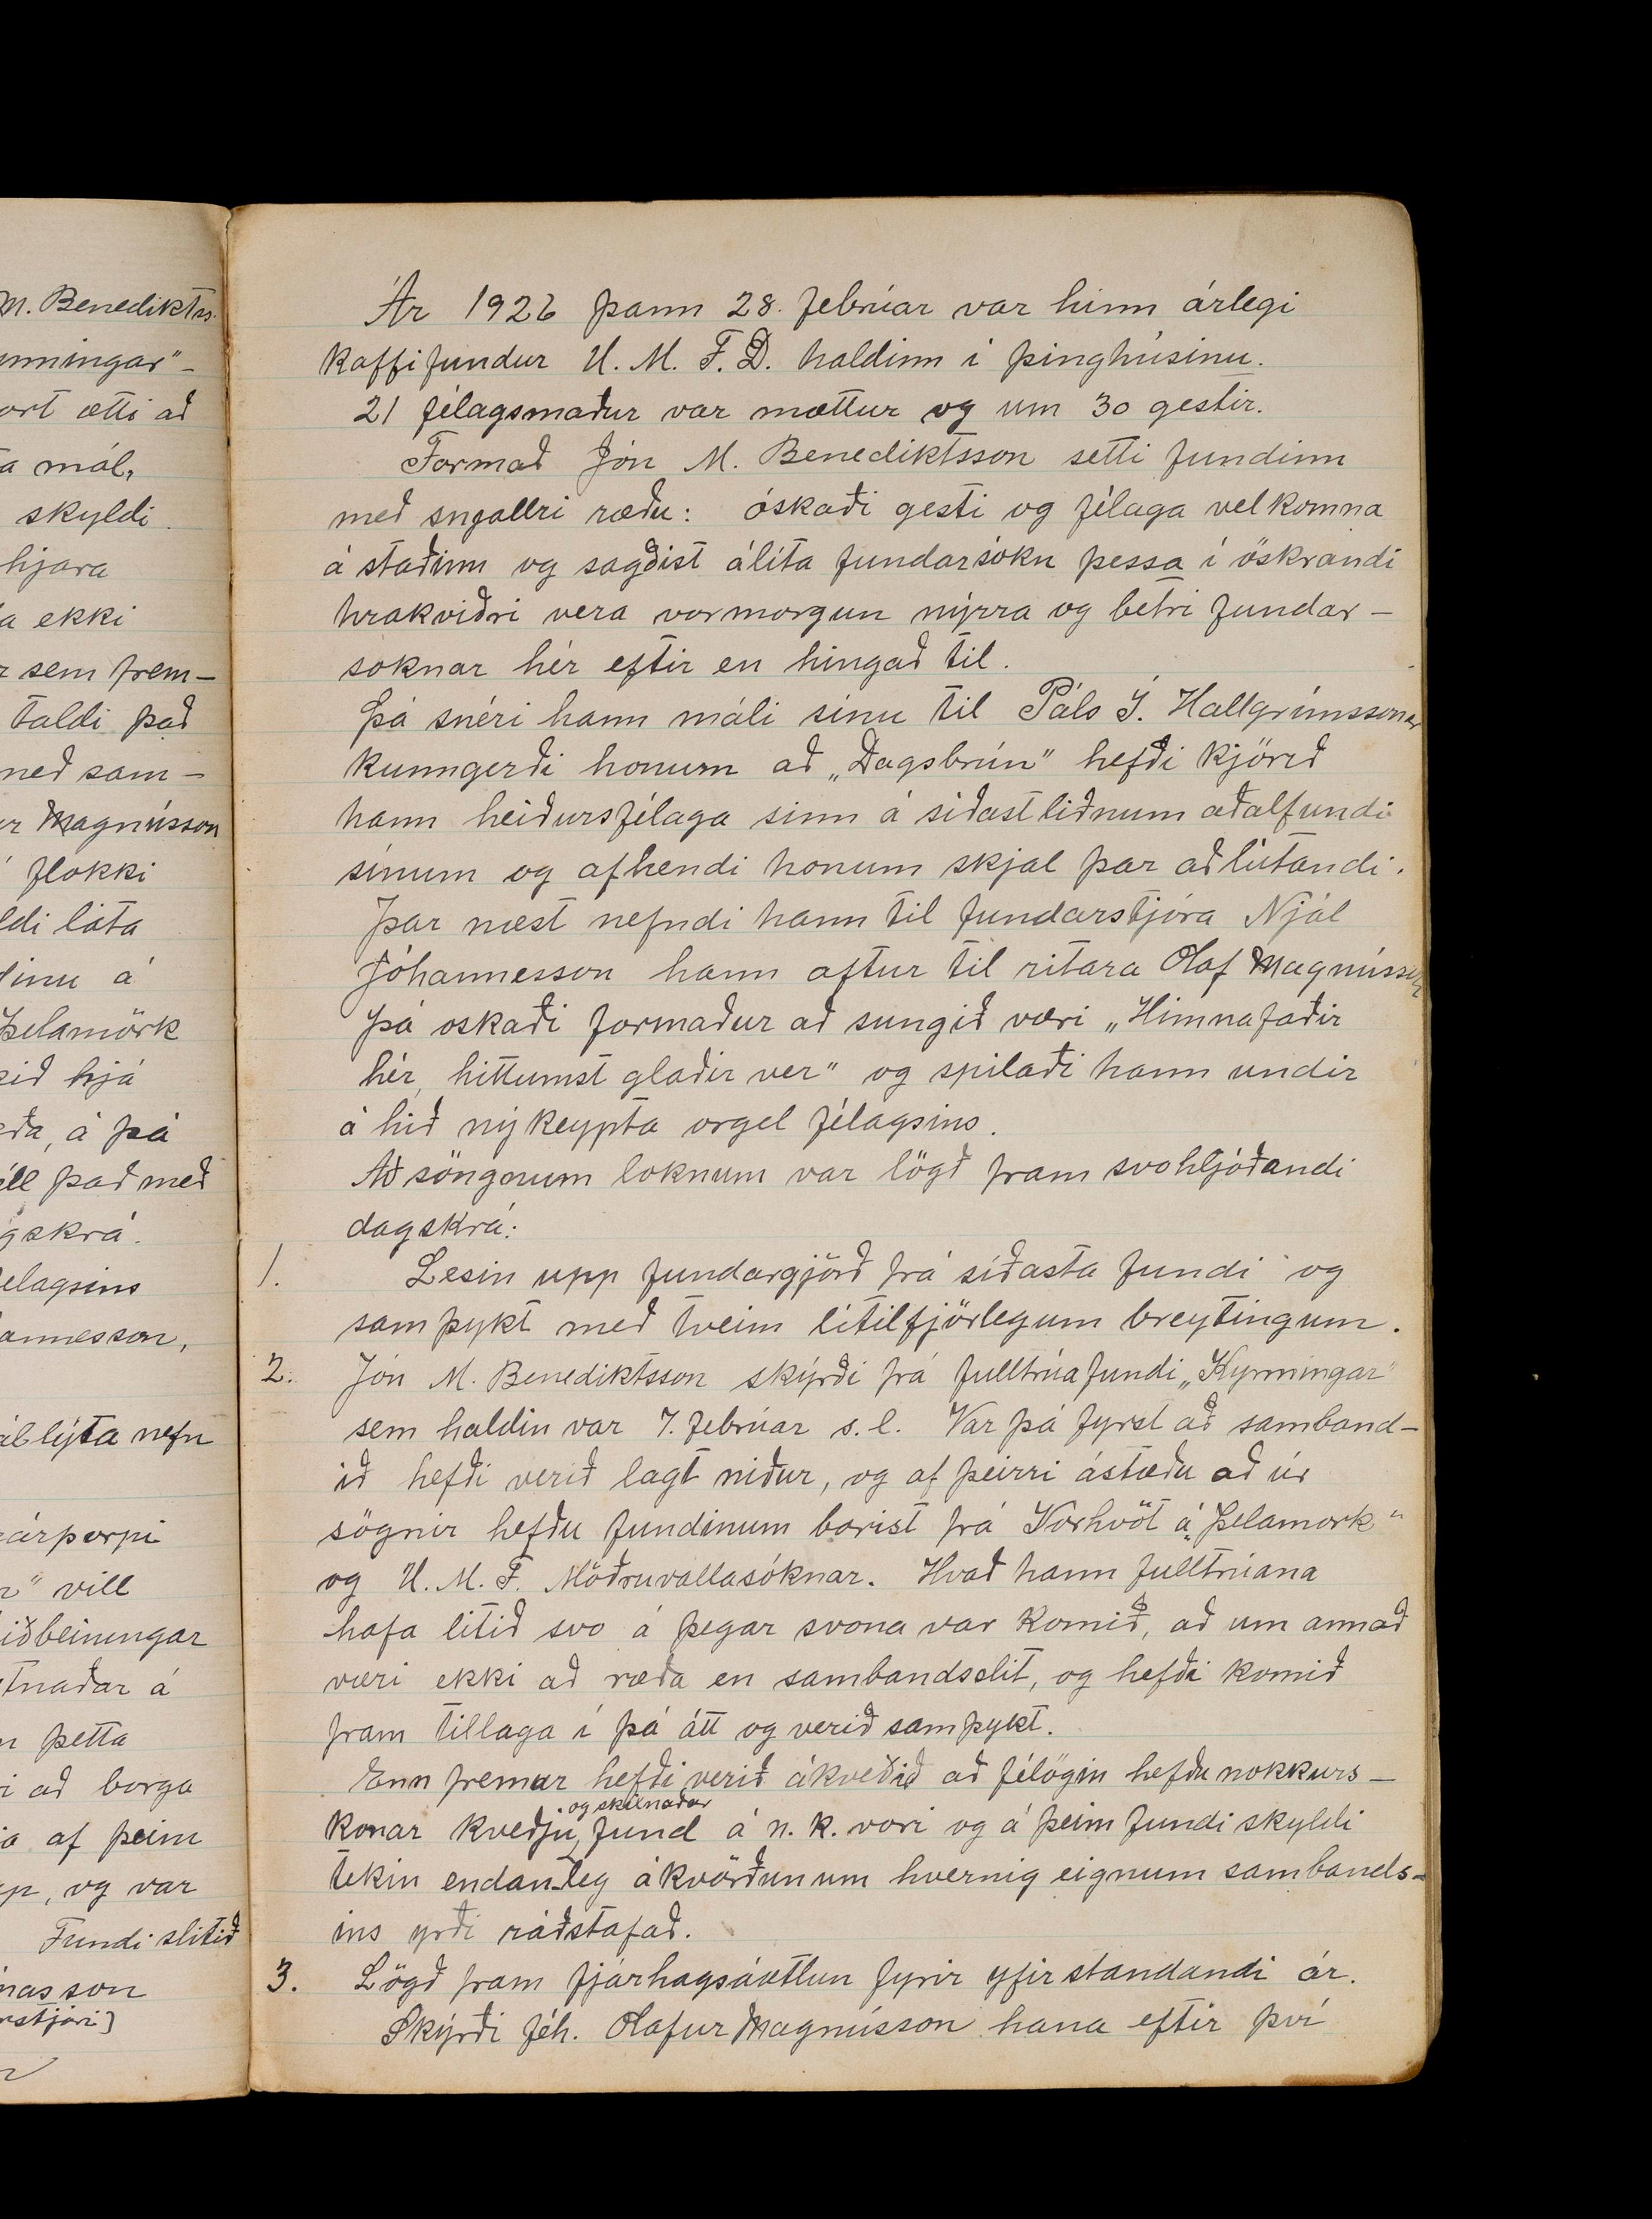 M. Benediktss.
nningar" –
ort ætti að
ta mál,
skyldi
hjara
a ekki
r sem frem –
taldi það
með sam –
ur Magnússon
í flokki
ldi láta
dinu á
Þelamörk
kið hjá
eða, á þá
ill það með
gskrá.
élagsins
annesson,
áblýta nefn
árþorpi
r" vill
iðbeiningar
tnaðar á
n þetta
i að borga
ja af þeim
p, og var
Fundi slitið
nasson
rstjóri]
Ár 1926 þann 28. febrúar var hinn árlegi
kaffifundur U. M. F. D. haldinn í þinghúsinu.
21 félagsmaður var mættur og um 30 gestir.
Formað Jón M. Benediktsson setti fundinn
með snjallri ræðu: óskaði gesti og félaga velkomna
á staðinn og sagðist álíta fundarsókn þessa í öskrandi
hrakviðri vera vormorgun nýrra og betri fundar –
soknar hér eftir en hingað til.
Þá snéri hann máli sínu til Páls J. Hallgrímssonar
kunngerði honum að „Dagsbrún" hefði kjörið
hann heiðursfélaga sinn á síðastliðnum aðalfundi
sínum og afhendi honum skjal þar aðlútandi.
Þar næst nefndi hann til fundarstjóra Njál
Jóhannesson hann aftur til ritara Olaf Magnússon
Þá oskaði formaður að sungið væri „Himnafaðir
hér, hittumst glaðir ver" og spilaði hann undir
á hið nýkeypta orgel félagsins.
Að söngnum loknum var lögð fram svohljóðandi
dagskrá:
1. Lesin upp fundargjörð frá síðasta fundi og
samþykt með tveim lítilfjörlegum breytingum.
2. Jón M. Benediktsson skýrði frá fulltrúafundi „Kynningar"
sem haldin var 7. febrúar s. l. Var þá fyrst að samband –
ið hefði verið lagt niður, og af þeirri ástæðu að úr
sögnir hefðu fundinum borist frá Vorhvöt á „Þelamork"
og U. M. F. Möðruvallasóknar. Hvað hann fulltrúana
hafa litið svo á þegar svona var komið, að um annað
væri ekki að ræða en sambandsslit, og hefði komið
fram tillaga í þá átt og verið samþykt.
Enn fremur hefði verið ákveðið að félögin hefðu nokkurs –
og skilnaðar
konar kveðju, fund á n. k. vori og á þeim fundi skyldi
tekin endanleg ákvörðun um hvernig eignum sambands –
ins yrði ráðstafað.
3. Lögð fram fjárhagsáætlun fyrir yfirstandandi ár.
Skýrði féh. Olafur Magnússon hana eftir því